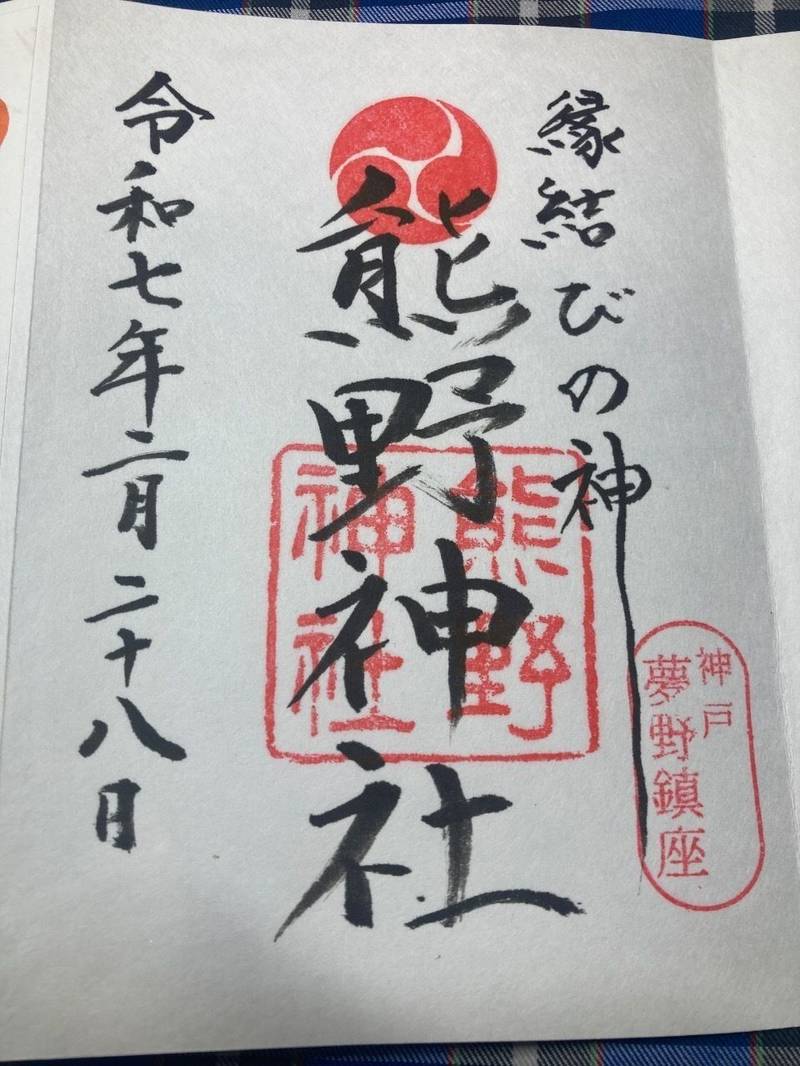 縁結びの神
神戸
夢野鎮座
熊野神社
熊野
神社
令和七年二月二十八日